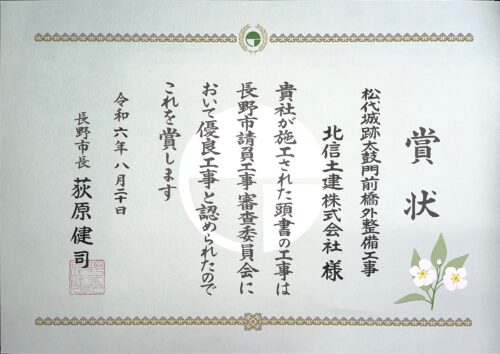 賞状
松代城跡太鼓門前橋外整備工事
北信土建株式会社 様
貴社が施工された頭書の工事は
長野市請負工事審査委員会に
おいて優良工事と認められたので
これを賞します
令和六年八月二十日
長野市長 荻原健司